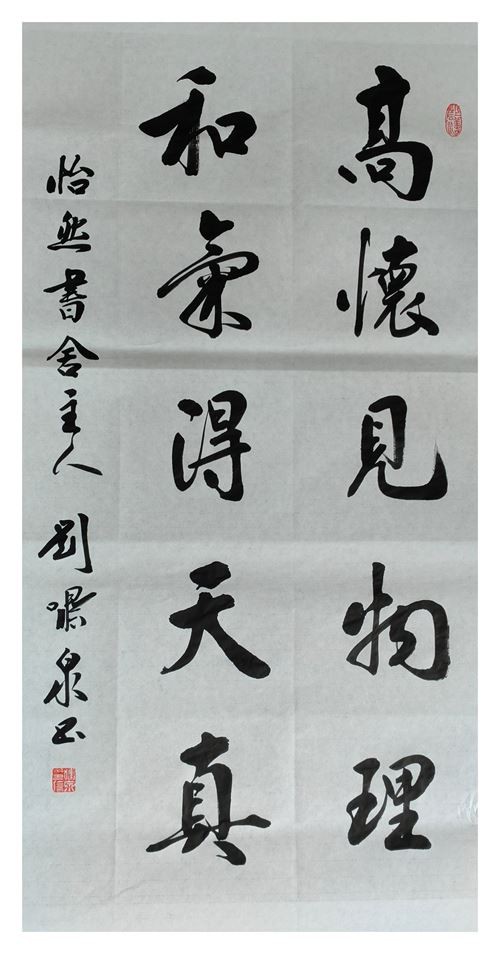 高懷見物理
和氣得天真
怡然書舍主人 劉 泉书